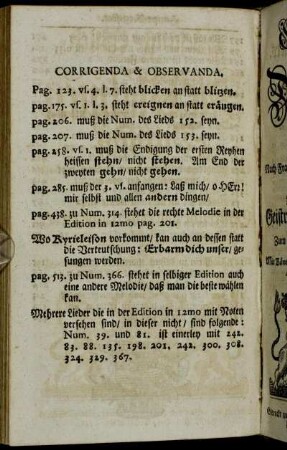 CORRIGENDA & OBSERVANDA.
Pag. 123. vs. 4. l. 7. steht blicken an statt blitzen.
pag. 175. vs. 1. l. 3. steht ereignen an statt eräugen.
pag. 206. muß die Num. des Lieds 152. seyn.
pag. 207. muß die Num. des Lieds 153. seyn.
pag. 258. vs. 1. muß die Endigung der ersten Reyhen
heissen stehn/ nicht stehen. Am End der
zweyten gehn/ nicht gehen.
pag. 285. muß der 3. vs. anfangen: Laß mich/ o HErr!
mir selbst und allen andern dingen/
pag. 438. zu Num. 314. stehet die rechte Melodie in der
Edition in 12mo pag. 201.
Wo Kyrieleison vorkommt/ kan auch an dessen statt
die Verteutschung: Erbarm dich unser, ge-
sungen werden.
pag. 513. zu Num. 366. stehet in selbiger Edition auch
eine andere Melodie/ daß man die beste wählen
kan.
Mehrere Lieder die in der Edition in 12mo mit Noten
versehen sind/ in dieser nicht/ sind folgende:
Num. 39. und 81. ist einerley mit 242.
83. 88. 135. 198. 201. 242. 300. 308.
324. 329. 367.